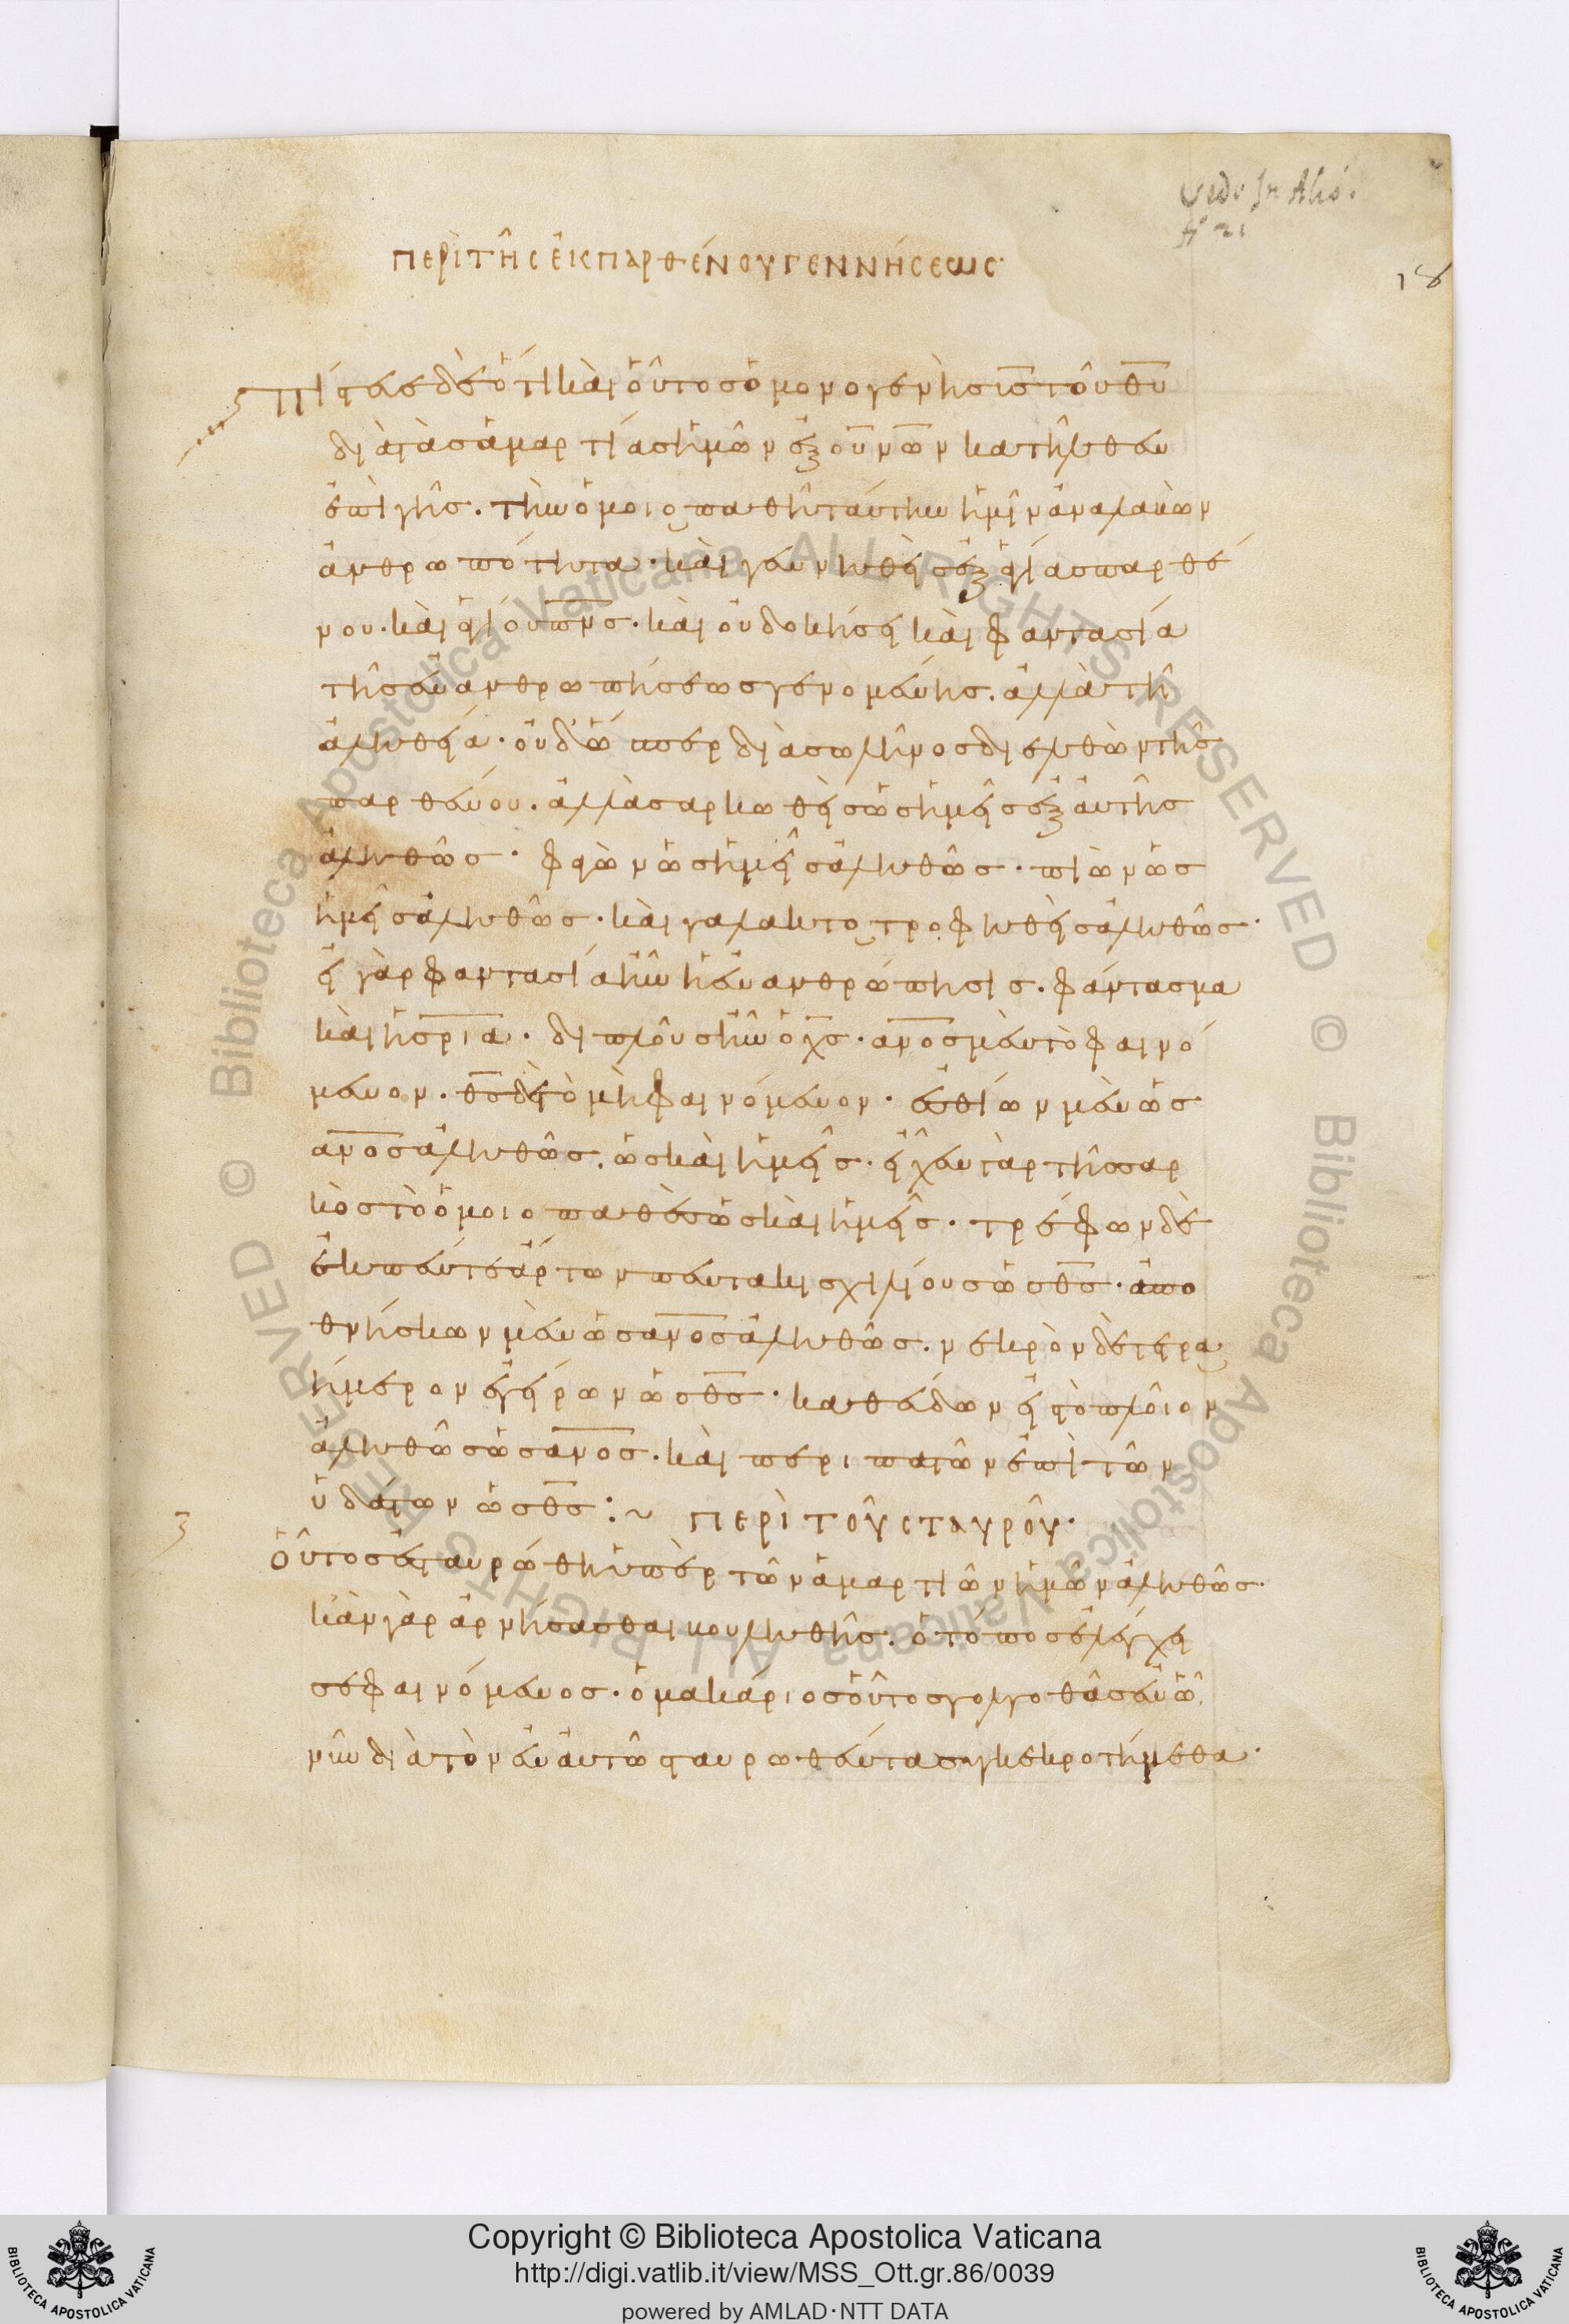 vedo In Alio.
fo 21
18
περὶ τῆς ἐκ παρθένου γεννήσεως·
Πίστευε δὲ ὅτι καὶ οὗτος ὁ μονογενὴς υἱς τοῦ θυ
διὰ τὰς ἁμαρτίας ἡμῶν ἐξ ουνῶν κατῆλθεν
ἐπὶ γῆς. τὴν ὁμοιοπαθῆ ταύτην ἡμῖν ἀναλαβὼν
ἀνθρωπότητα· καὶ γεννηθεὶς ἐξ ἁγίας παρθέ
νου· καὶ ἁγίου πνς· καὶ οὐ δοκήσει καὶ φαντασία
τῆς ἐνανθρωπήσεως γενομένης. ἀλλὰ τῆ
ἀληθεία· οὐδ' ὥσπερ διὰ σωλῆνος διελθὼν τῆς
παρθένου. ἀλλὰ σαρκωθεὶς ὡς ἡμεῖς ἐξ αὐτῆς
ἀληθῶς· φαγὼν ὡς ἡμεῖς ἀληθῶς· πιὼν ὡς
ἡμεῖς ἀληθῶς· καὶ γαλακτοτροφηθεὶς ἀληθῶς·
εἰ γὰρ φαντασία ἦν ἡ ἐνανθρώπησις. φάντασμα
καὶ ἡ σρια. διπλοῦς ἦν ὁ χς· ανος μὲν τὸ φαινό
μενον. θς δὲ τὸ μὴ φαινόμενον· ἐσθίων μὲν ὡς
ανος ἀληθῶς. ὡς καὶ ἡμεῖς. εἶχεν γὰρ τῆς σαρ
κὸς τὸ ὁμοιοπαθὲς ὡς καὶ ἡμεῖς· τρέφων δὲ
ἐκ πέντε ἄρτων πεντακισχιλίους ὡς θς· ἀπο
θνήσκων μὲν ὡς ανος ἀληθῶς. νεκρὸν δὲ τετρα
ήμερον ἐγείρων ὡς θς· καθεύδων εἰς τὸ πλοῖον
ἀληθῶς ὡς ανος. καὶ περιπατῶν ἐπὶ τῶν
ὑδάτων ὡς θς:~ περὶ τοῦ σταυροῦ·
Οὗτος ἐσταυρώθη ὑπὲρ τῶν ἁμαρτιῶν ἡμῶν ἀληθῶς·
κἂν γὰρ ἀρνήσασθαι βουληθῆς. ὁ τόπος ἐλέγχει
σε φαινόμενος· ὁ μακάριος οὗτος γολγοθᾶς ἐν ὧ
νῦν διὰ τὸν ἐν αὐτῶ σταυρωθέντα συγκεκροτήμεθα·
Copyright © Biblioteca Apostolica Vaticana
http://digi.vatlib.it/view/MSS_Ott.gr.86/0039
powered by AMLAD·NTT DATA
BIBLIOTECA APOSTOLICA VATICANA
BIBLIOTECA APOSTOLICA VATICANA
© Biblioteca Apostolica Vaticana ALL RIGHTS RESERVED © Biblioteca Apostolica Vaticana ALL RIGHTS RESERVED